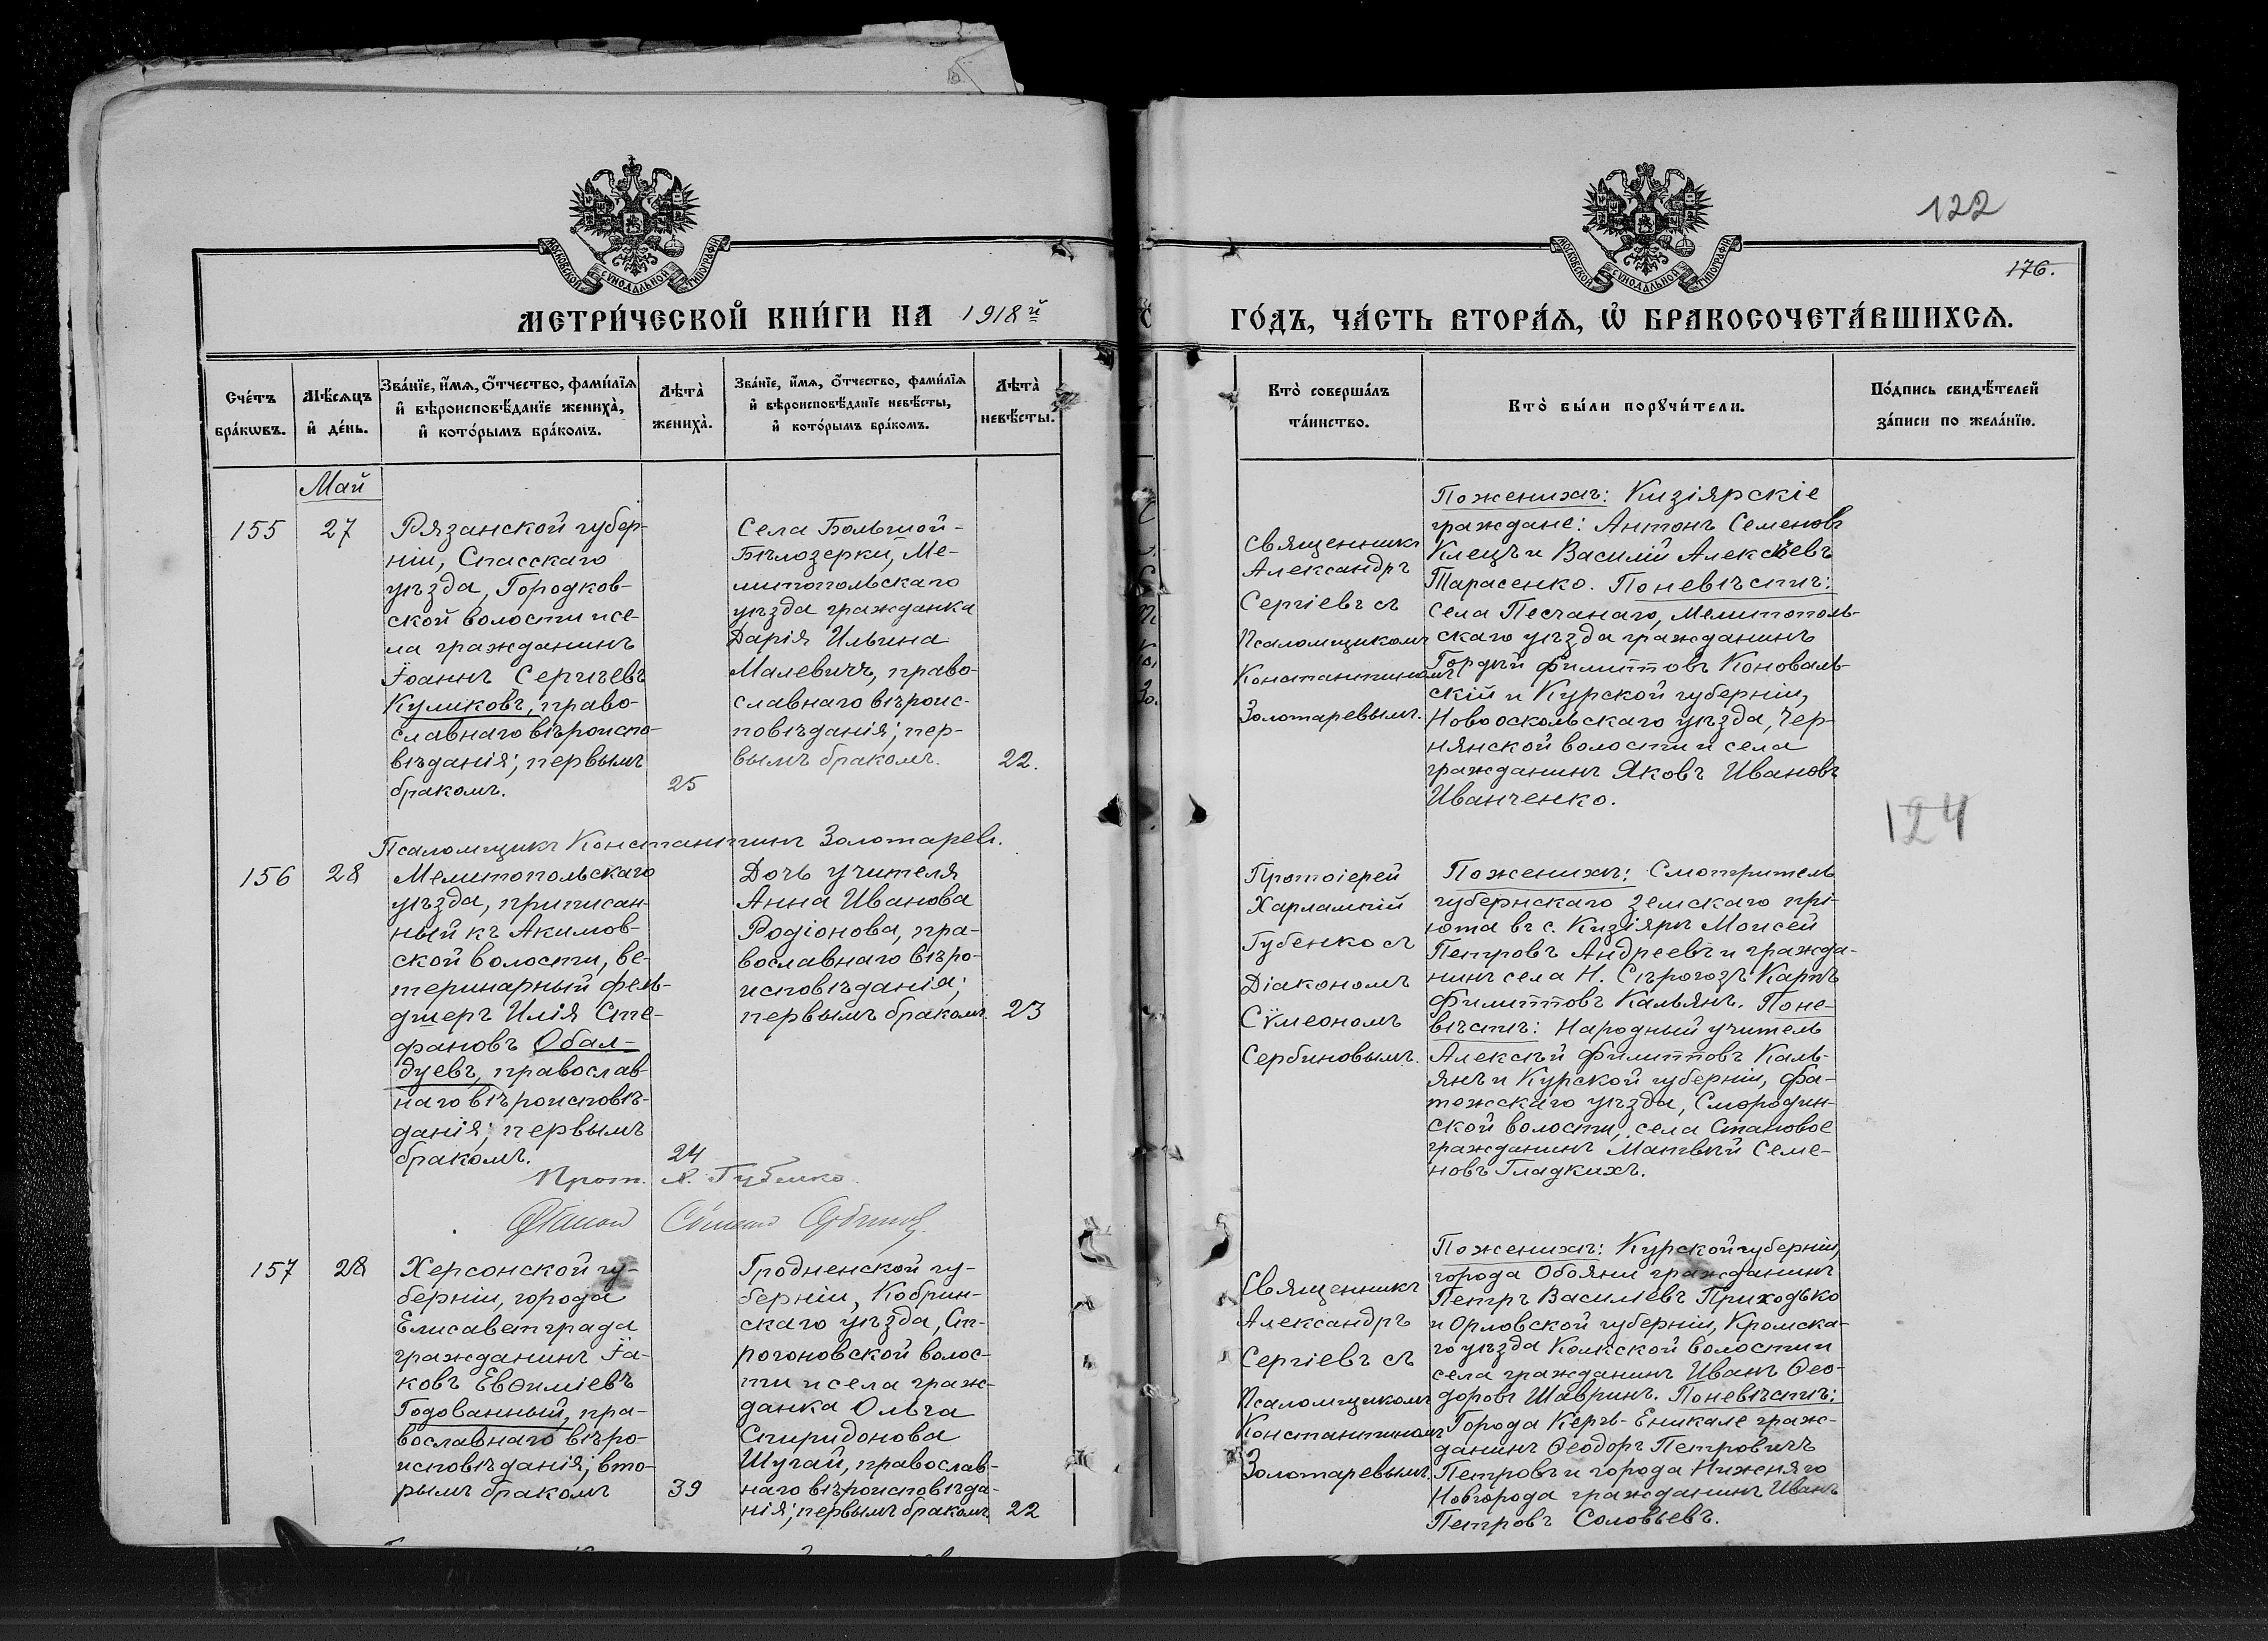 122
176.
МОСКОВСКОЙ СѴНОДАЛЬНОЙ ТИПОГРАФІИ
МОСКОВСКОЙ СѴНОДАЛЬНОЙ ТИПОГРАФІИ
МЕТРИ́ЧЕСКОЙ КНИ́ГИ НА 1918й
ГО́ДЪ, ЧА́СТЬ ВТОРА́Ѧ, Ѡ҆ БРАКОСОЧЕТА́ВШИХСѦ.
Сче́тъ бра́кѡвъ.
Мѣ́сѧцъ и҆ де́нь.
Зва́нїе, и҆́мѧ, ѻ҆́тчество, фами́лїѧ и҆ вѣроисповѣ́данїе жениха̀, и҆ кото́рымъ бра́комъ.
Лѣта̀ жениха̀.
Зва́нїе, и҆́мѧ, ѻ҆́тчество, фами́лїѧ и҆ вѣроисповѣ́данїе невѣ́сты, и҆ кото́рымъ бра́комъ.
Лѣта̀ невѣ́сты.
Кто̀ соверша́лъ та́инство.
Кто̀ бы́ли порꙋчи́тели.
По́дпись свидѣ́телей за́писи по жела́нїю.
Май
155
27
Рязанской губер-
ніи, Спасскаго
уѣзда, Городков-
ской волости и се-
ла гражданинъ
Іоаннъ Сергѣевъ
Куликовъ, право-
славнаго вѣроиспо-
вѣданія; первымъ
бракомъ.
25
Села Большой-
Бѣлозерки, Ме-
литопольскаго
уѣзда гражданка
Дарія Ильина
Малевичъ, право-
славнаго вѣроис-
повѣданія; пер-
вымъ бракомъ.
22.
Священникъ
Александръ
Сергіевъ съ
Псаломщикомъ
Константиномъ
Золотаревымъ.
По женихѣ: Кизіярскіе
граждане: Антонъ Семеновъ
Клецъ и Василій Алексѣевъ
Тарасенко. По невѣстѣ:
села Песчанаго, Мелитополь-
скаго уѣзда гражданинъ
Гордѣй Филипповъ Коноваль-
скій и Курской губерніи,
Новооскольскаго уѣзда, Чер-
нянской волости и села
гражданинъ Яковъ Ивановъ
Иванченко.
124
Псаломщикъ Константинъ Золотаревъ.
156
28
Мелитопольскаго
уѣзда, приписан-
ный къ Акимов-
ской волости, ве-
теринарный фель-
дшеръ Илія Сте-
фановъ Обал-
дуевъ, православ-
наго вѣроисповѣ-
данія; первымъ
бракомъ.
24
Дочь учителя
Анна Иванова
Родіонова, пра-
вославнаго вѣро-
исповѣданія;
первымъ бракомъ.
23
Протоіерей
Харлампій
Губенко съ
Діакономъ
Сѵмеономъ
Сербиновымъ.
По женихѣ: Смотритель
губернскаго земскаго прі-
юта въ с. Кизіярѣ Моисей
Петровъ Андреевъ и гражда-
нинъ села Н. Сѣрогозъ Карпъ
Филипповъ Кальянъ. По не-
вѣстѣ: Народный учитель
Алексѣй Филипповъ Каль-
янъ и Курской губерніи, Фа-
тежскаго уѣзда, Смородин-
ской волости, села Становое
гражданинъ Матвѣй Семе-
новъ Гладкихъ.
Прот. Х. Губенко
Діаконъ Сѵмеонъ Сербиновъ.
157
28
Херсонской гу-
берніи, города
Елисаветграда
гражданинъ Іа-
ковъ Евѳиміевъ
Годованный, пра-
вославнаго вѣро-
исповѣданія; вто-
рымъ бракомъ
39
Гродненской гу-
берніи, Кобрин-
скаго уѣзда, Ст-
рогоновской волос-
ти и села граж-
данка Ольга
Спиридонова
Шугай, православ-
наго вѣроисповѣда-
нія; первымъ бракомъ
22
Священникъ
Александръ
Сергіевъ съ
Псаломщикомъ
Константиномъ
Золотаревымъ.
По женихѣ: Курской губерніи,
города Обояни гражданинъ
Петръ Василіевъ Приходько
и Орловской губерніи, Кромска-
го уѣзда Колкской волости и
села гражданинъ Иванъ Ѳео-
доровъ Шавринъ. По невѣстѣ:
Города Керчь-Еникале граж-
данинъ Ѳеодоръ Петровичъ
Петровъ и города Нижняго
Новгорода гражданинъ Иванъ
Петровъ Соловьевъ.